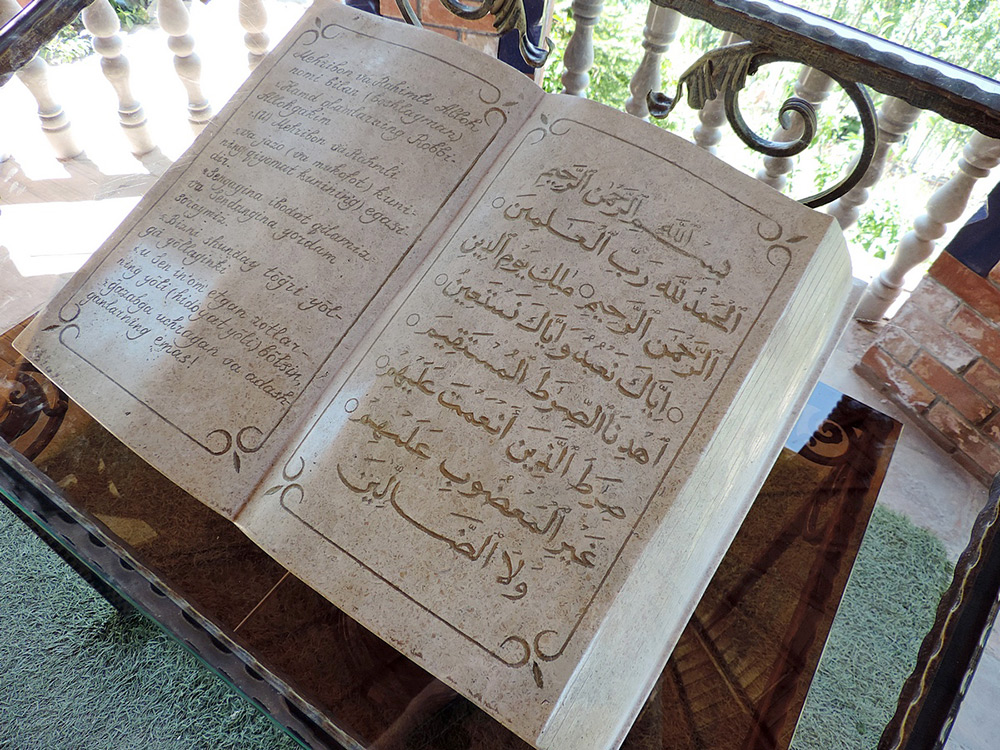 Mehribon va Rahimli Alloh
nomi bilan (boshlayman)
"Hamd olamlarning Robbi-
Allohgakim
"(U) Mehribon va Rahmli
"va jazo (va mukofot) kuni-
ning(qiyomat kunining) egasi
dir.
"Sengagina ibodat qilamiz
va Sendangina yordam
so'raymiz
"Bizni shunday tog'ri yol-
ga yo'llaginki:
"u Sen in'om etgan zotlar-
ning yo'li (hidoyat yo'li) bo'lsin,
g'azabga uchragan va adash-
ganlarning emas!
بسم الله الرَّحْمَٰنِ الرَّحِيمِ
الْحَمْدُ لِلَّهِ رَبِّ الْعَـٰلَمِينَ
الرَّحْمَٰنِ الرَّحِيمِ مَٰلِكِ يَوْمِ الدِّينِ
إِيَّاكَ نَعْبُدُ وَإِيَّاكَ نَسْتَعِينُ
ٱهْدِنَا ٱلصِّرَٰطَ الْمُسْتَقِيمَ
صِرَٰطَ ٱلَّذِينَ أَنْعَمْتَ عَلَيْهِمْ
غَيْرِ الْمَغْضُوبِ عَلَيْهِمْ
وَلَا الضَّالِّينَ